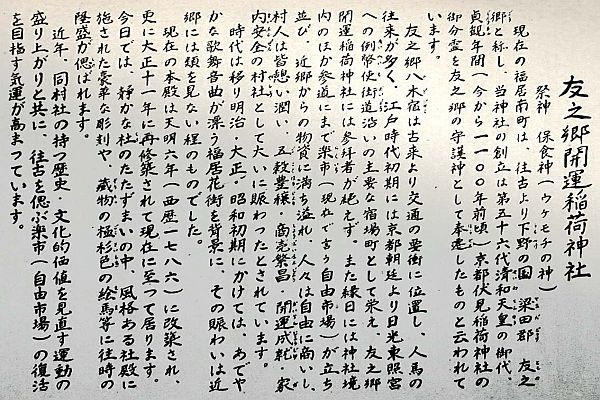 友之郷開運稲荷神社
祭神　保食神（ウケモチの神）
現在の福居南町は、往古より下野の国　梁田郡　友之
郷と称し、当神社の創立は第五十六代清和天皇の御代、
貞観年間（今から一一〇〇年前頃）京都伏見稲荷神社の
御分霊を友之郷の守護神として奉遷したものと云われて
います。
友之郷八木宿は古来より交通の要衝に位置し、人馬の
往来が多く、江戸時代初期には京都朝廷より日光東照宮
への例幣使街道沿いの主要な宿場町として栄え　友之郷
開運稲荷神社には参拝者が絶えず。また縁日には神社境
内のほか参道にまで楽市（現在で言う自由市場）が立ち
並び、近郷からの物資に満ち溢れ、人々は自由に商いし、
村人は皆憩い潤い、五穀豊穣・商売繁昌　開運成就・家
内安全の村社として大いに賑わったとされています。
時代は移り明治・大正・昭和初期にかけては、あでや
かな歌舞音曲が漂う福居花街を背景に、その賑わいは近
郷には類を見ない程のものでした。
現在の本殿は天明六年（西歴一七八六）に改築され、
更に大正十一年に再修築されて現在に至って居ります。
今日では、静かな杜のたたずまいの中、風格ある社殿に
施された豪華な彫刻や、蔵物の極彩色の絵馬等に往時の
隆盛が偲ばれます。
近年、同村社の持つ歴史・文化的価値を見直す運動の
盛り上がりと共に、往古を偲ぶ楽市（自由市場）の復活
を目指す気運が高まっています。